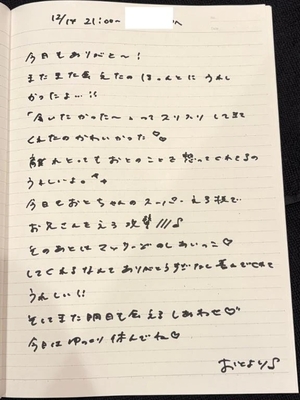 12/18 21:00〜 へ
今日もありがと〜!
またまた会えたのほんとにうれし
かったよ…!!
「会いたかった〜」ってスリスリして
くれたのかわいかった♡♡
離れとってもおとのこと想ってくれとるの
うれしいよ。
今日もおとちゃんのスーパーえろ技で
お兄さんをえろ攻撃///♪
そのあとはマッサージのしあいっこ♡
してくれるなんてありがとうすぎだし喜んでくれて
うれしい!!
そしてまた明日も会えるしあわせ♡
今日はゆっくり休んでね♡
おとより♪